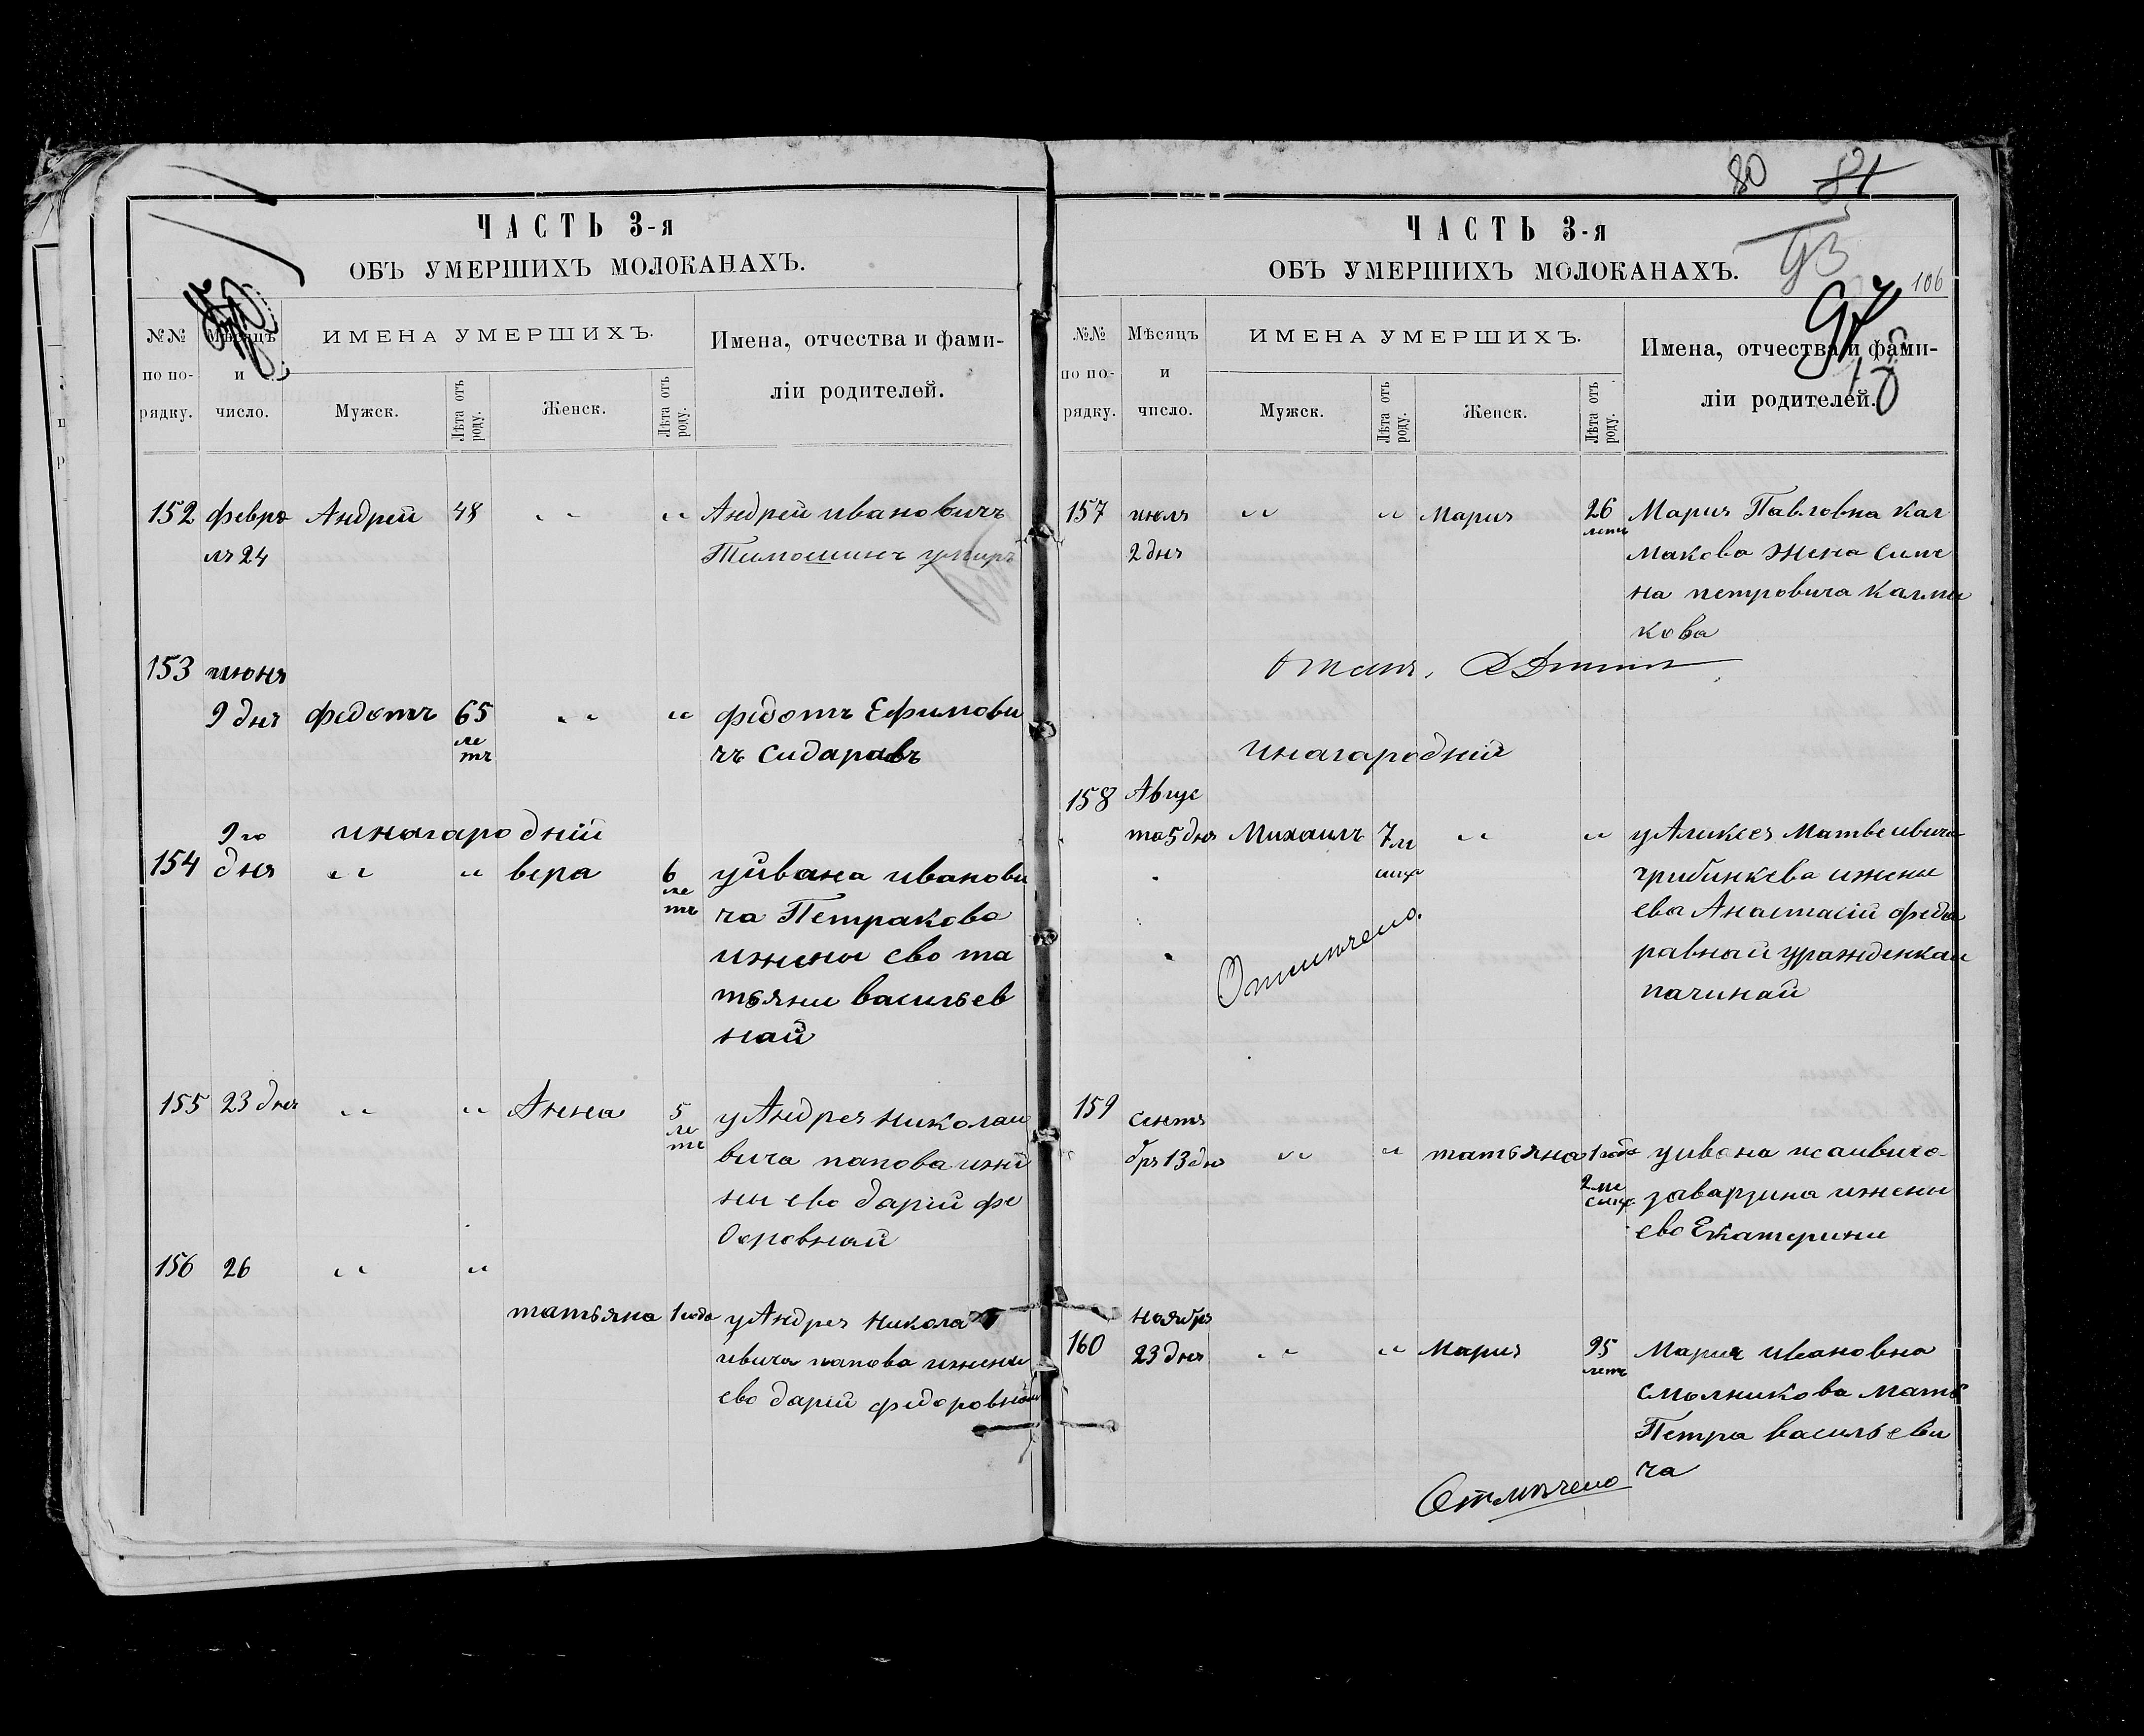 ЧАСТЬ 3-я
ОБЪ УМЕРШИХЪ МОЛОКАНАХЪ.
№№ по порядку.
Мѣсяцъ и число.
ИМЕНА УМЕРШИХЪ.
Мужск.
Лѣта отъ роду.
Женск.
Лѣта отъ роду.
Имена, отчества и фами-
ліи родителей.
152 февра Андрей 48 " " Андрей ивановичъ
ля 24 Тимошинъ умиръ
153 июня
9 дня федотъ 65 " " федотъ Ефимови
ле
тъ
чъ сидаравъ
9 го инагародній
154 дня " " вера 6 уйвана иванови
ле
тъ
ча Петракова
ижены ево та
тьяни васильев
най
155 23 дня " " Анна 5 уАндрея николаи
ле
тъ
вича папова ижи
ны ево дарій фе
доровнай
156 26 " "
татьяна 1 года уАндрея никола
ивича папова ижены
ево дарій федоровнай
80 81
93
97
106
ЧАСТЬ 3-я
ОБЪ УМЕРШИХЪ МОЛОКАНАХЪ.
№№ по порядку.
Мѣсяцъ и число.
ИМЕНА УМЕРШИХЪ.
Мужск.
Лѣта отъ роду.
Женск.
Лѣта отъ роду.
Имена, отчества и фами-
ліи родителей.
157 июля " " Мария 26 Мария Павловна кал
2 дня летъ
макова жена симе
на петровича калма
кова
инагародній
158 Авгус
та 5 дня Михаилъ 7 ме " " уАликсея Матвеивича
сице
грибинкева ижены
ево Анастасій феда
равнай уражденкаи
пачинай
Отмѣчено.
159 сентя
бря 13 дня " " татьяна 1 года уивана исаивича
2 ме
сице
заварзина ижены
ево Екатерини
ноября
160 23 дня " " Мария 95 Мария ивановна
летъ
смолникова мать
Петра васильеви
ча
Отмѣчено